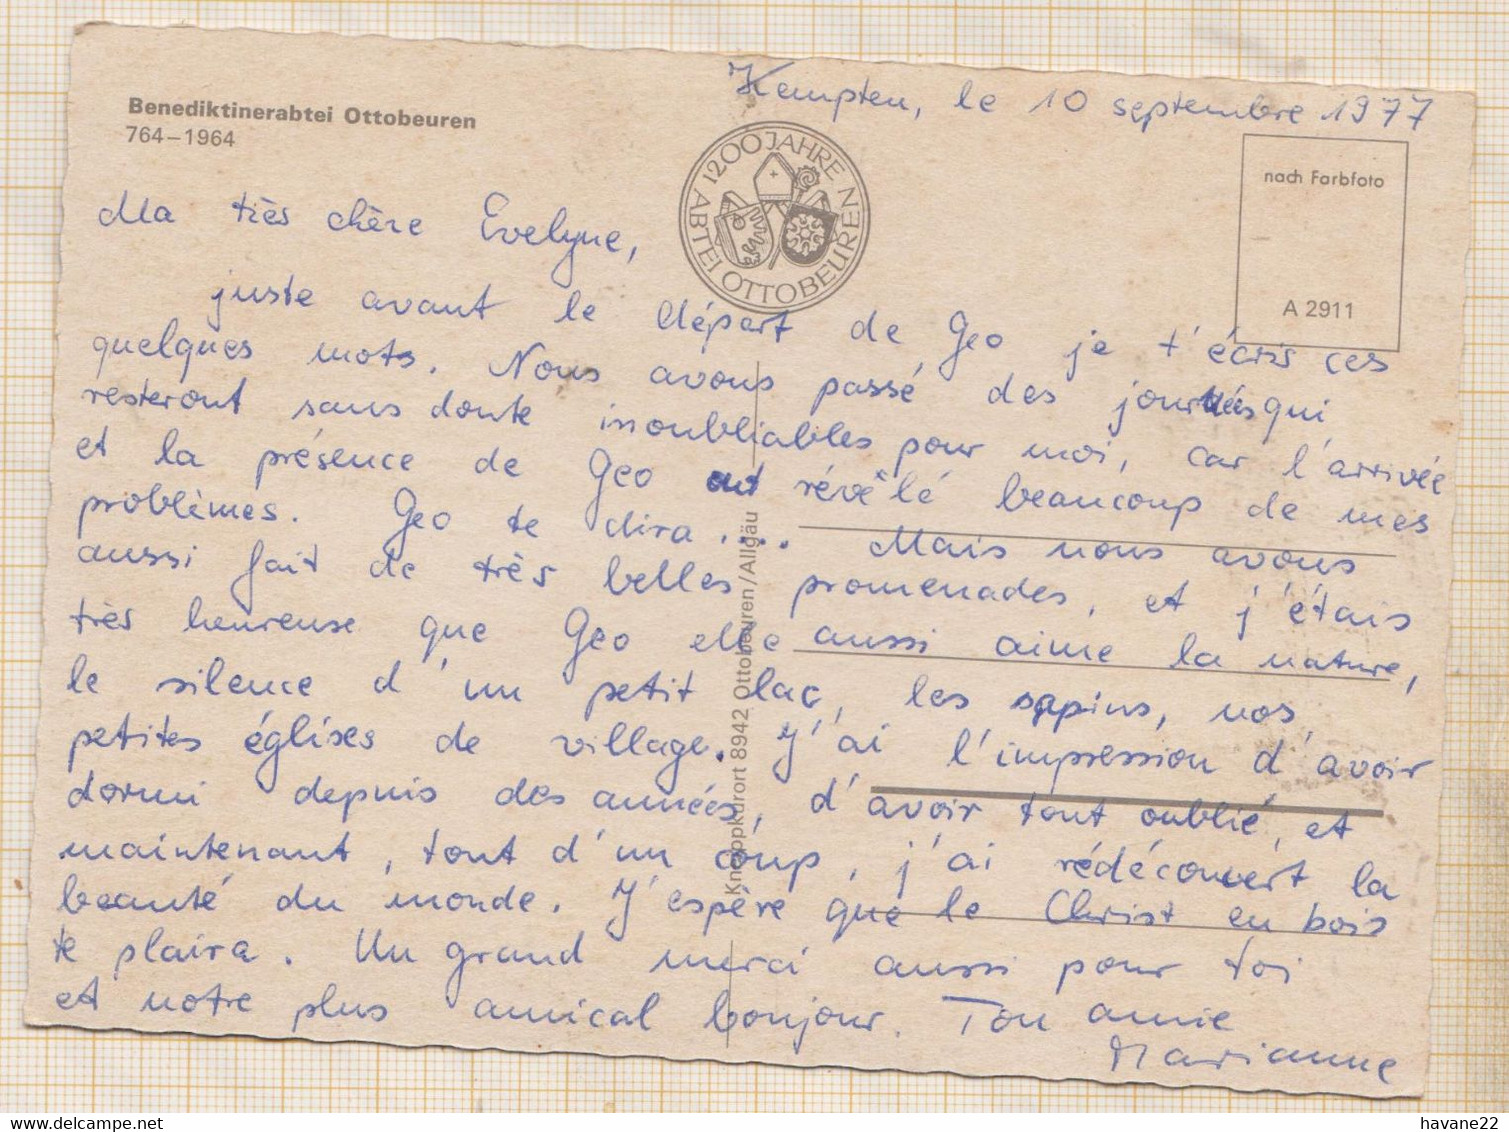 Benediktinerabtei Ottobeuren
764–1964
1200 JAHRE ABTEI OTTOBEUREN
nach Farbfoto
A 2911
Knappkurort 8942 Ottobeuren/Allgäu
Kempten, le 10 septembre 1977
Ma très chère Evelyne,
juste avant le départ de Geo je t'écris ces
quelques mots. Nous avons passé des journées qui
resteront sans doute inoubliables pour moi, car l'arrivée
et la présence de Geo ont révélé beaucoup de mes
problèmes. Geo te dira.... Mais nous avons
aussi fait de très belles promenades, et j'étais
très heureuse que Geo elle aussi aime la nature,
le silence d'un petit lac, les sapins, nos
petites églises de village. J'ai l'impression d'avoir
dormi depuis des années, d'avoir tout oublié, et
maintenant, tout d'un coup, j'ai rédécouvert la
beauté du monde. J'espère que le Christ en bois
te plaira. Un grand merci aussi pour toi
et notre plus amical bonjour. Ton amie
Marianne
havane22